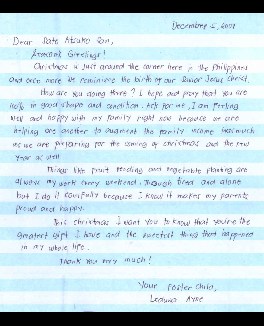 December 5, 2001
Dear Sato Atsuko San,
Greetings!
Christmas is just around the corner here in the Philippines
and once more we reminisce the birth of our Savior Jesus Christ.
How are you doing there? I hope and pray that you are
in good shape and condition. As for me, I am feeling
well and happy with my family right now because we are
helping one another to augment the family income inasmuch
as we are preparing for the coming of christmas and the new
year as well.
Things like fruit vending and vegetable planting are
always my work every weekend. Though tired and alone
but I do it joyfully because I know it makes my parents
proud and happy.
This christmas I want you to know that you're the
greatest gift I have and the sweetest thing that happened
in my whole life.
Thank you very much!
Your foster child,